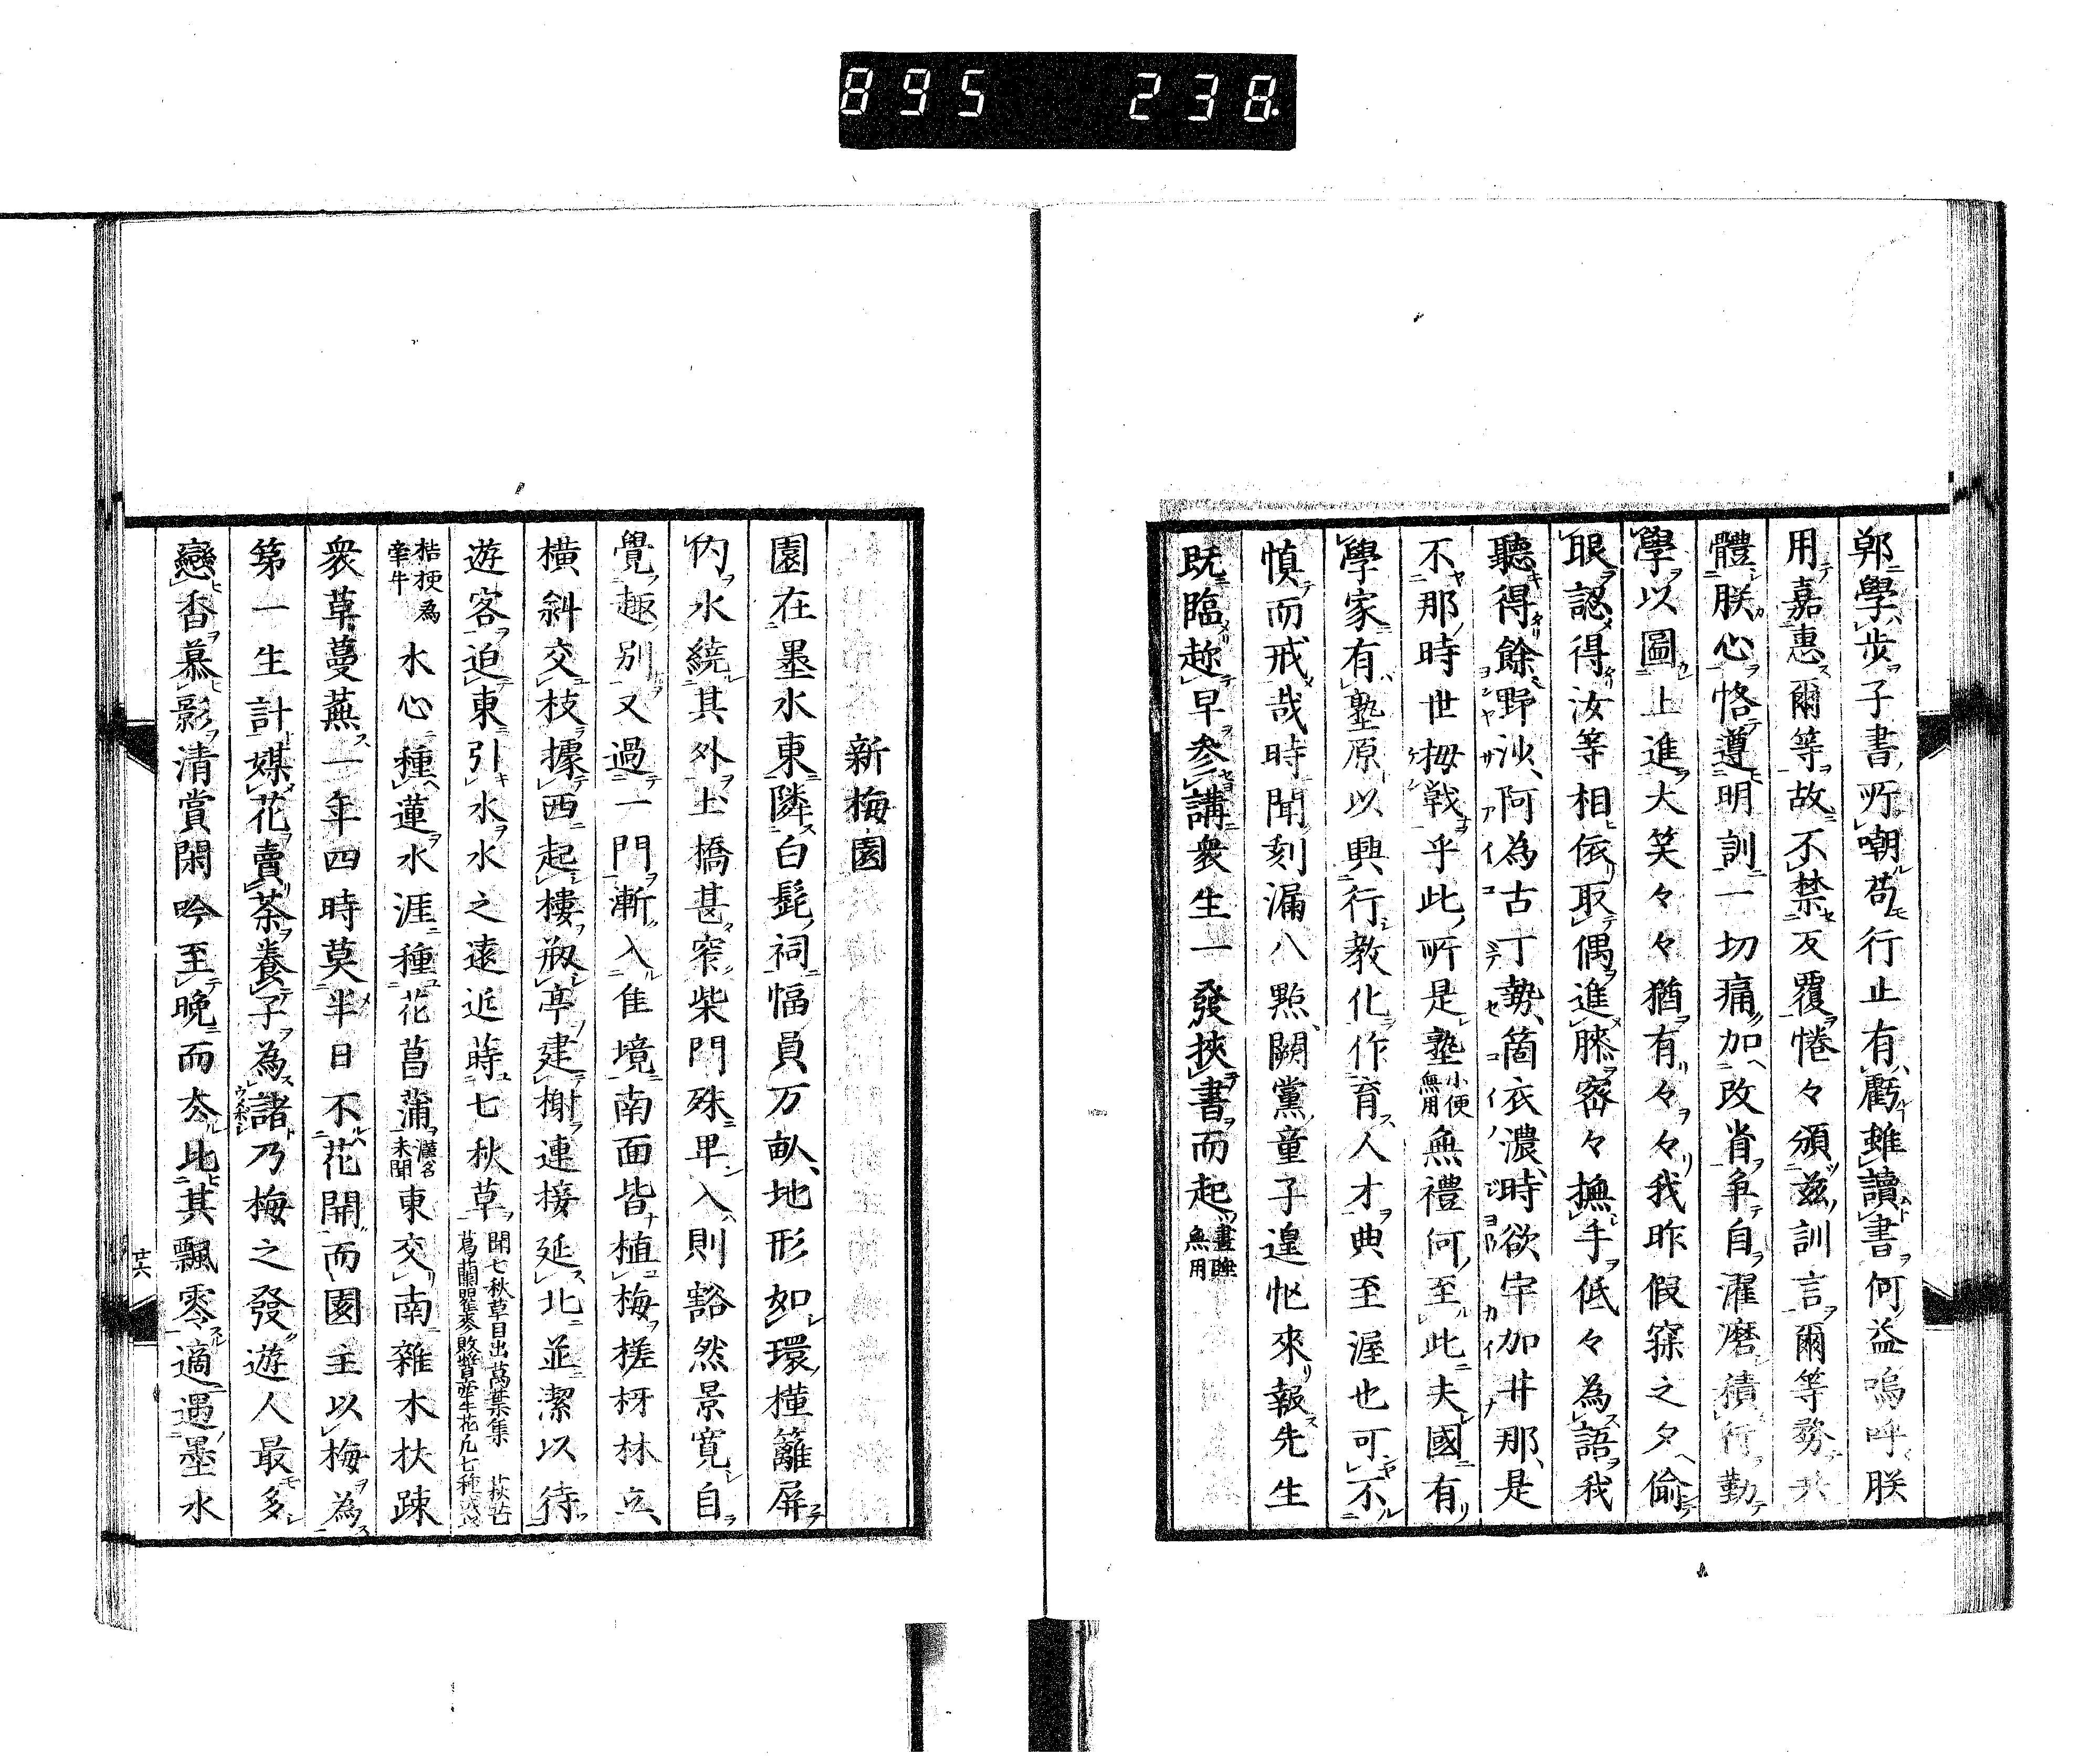 895 238.
鄭學步子書所嘲苟行止有虧雖讀書何益嗚呼朕
用嘉惠爾等故不禁反覆惓々頒茲訓言爾等務共
體朕心恪遵明訓一切痛加改省争自濯磨積行勤
學以圖上進大笑々々猶有々々我昨假寐之夕偷
眼認得汝等相依取偶進膝密々撫手低々為語我
聽得餘野沙、阿為古丁勢、箇衣濃、時欲宇加井那、是
不那時世梅戦乎此所是塾小便無用無禮何至此夫國有
學家有塾原以興行教化作育人才典至渥也可不
慎而戒哉時聞刻漏八點、闕黨童子遑忙來報先生
既臨趂早參講衆生一發挾書而起晝睡無用
新梅園
園在墨水東隣白髭祠幅員万畝、地形如環槿籬屏
内水繞其外土橋甚窄柴門殊卑入則豁然景寛自
覺趣別又過一門漸入佳境南面皆植梅槎枒林立、
横斜交枝據西起樓瓶亭建榭連接延北並潔以待
遊客迫東引水水之遠近蒔七秋草聞七秋草目出萬葉集 萩芒葛蘭瞿麥敗醬牽牛花凡七種
桔梗為牽牛水心種蓮水涯種花菖蒲漢名未聞東交南雜木扶踈
衆草蔓蕪一年四時莫半日不花開而園主以梅為
第一生計媒花賣茶養子為諸乃梅之發遊人最多
戀香慕影清賞閑吟至晩而太比其飄零適遇墨水
廿六